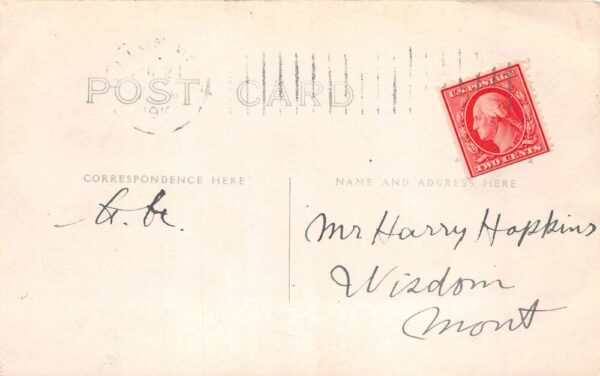 POST CARD
U.S. POSTAGE
TWO CENTS
CORRESPONDENCE HERE
NAME AND ADDRESS HERE
Mr Harry Hopkins
Wisdom
Mont